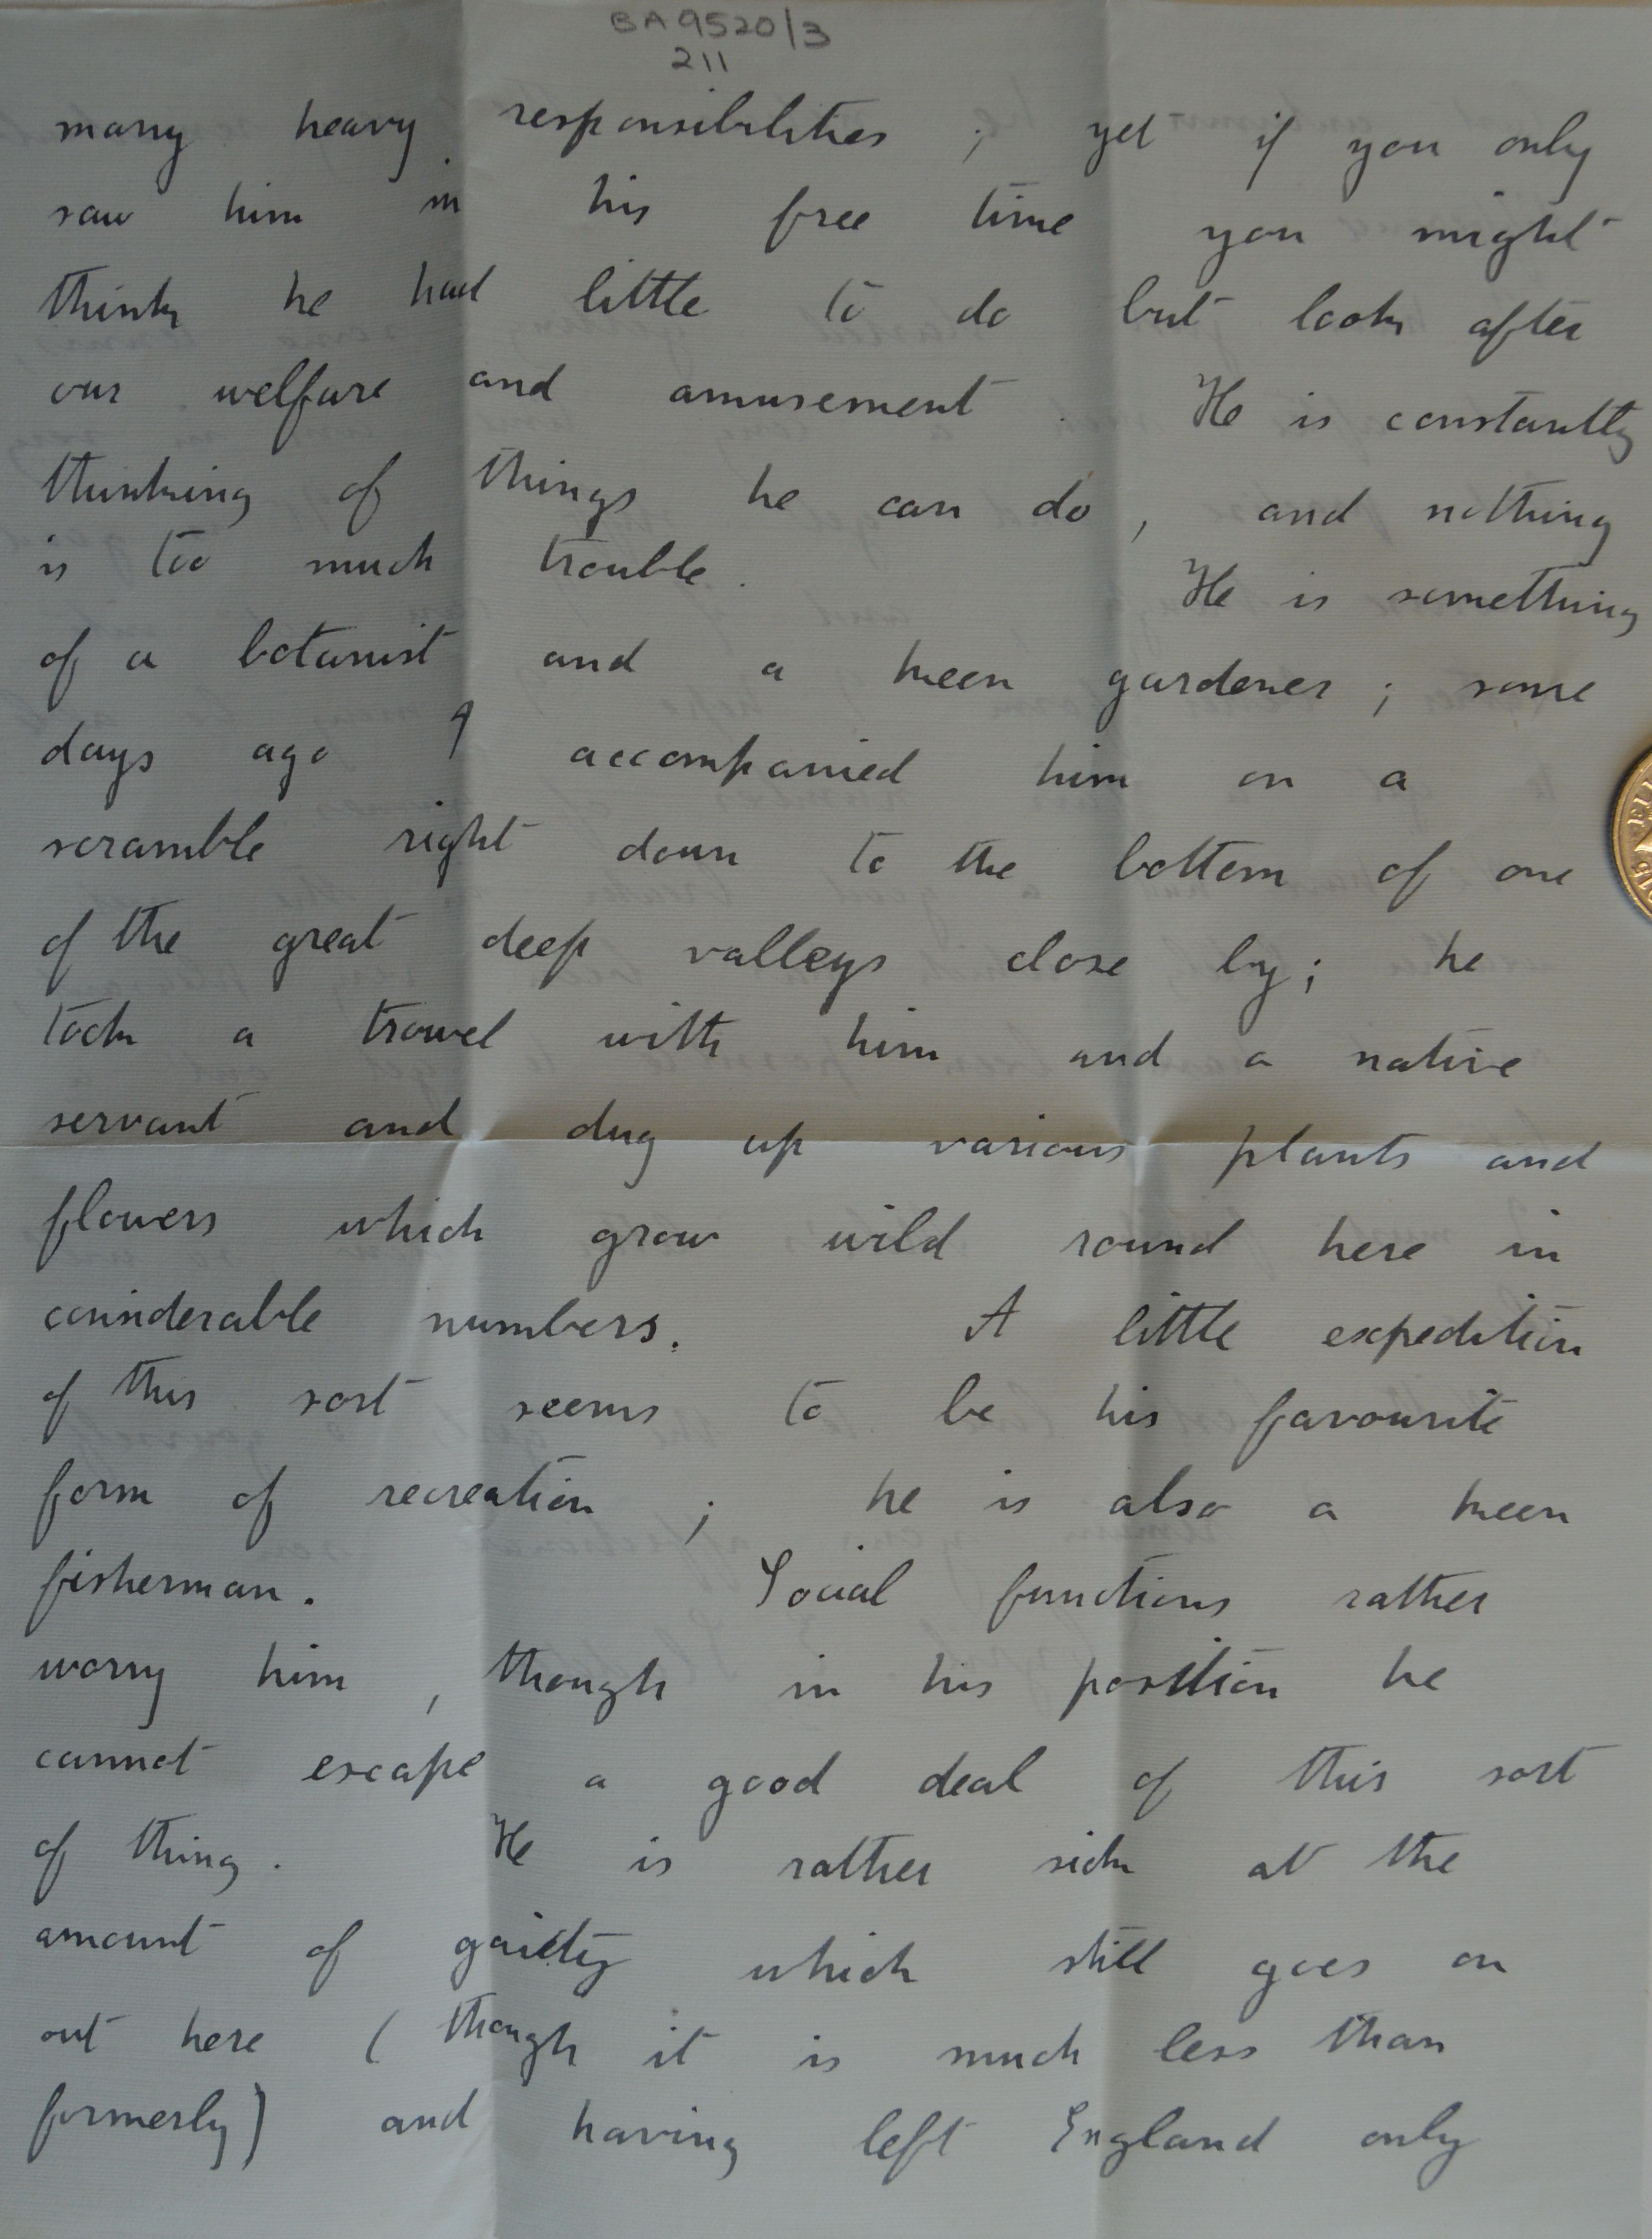 BA9520/3
211
many heavy responsibilities ; yet if you only
saw him in his free time you might
think he had little to do but look after
our welfare and amusement . He is constantly
thinking of things he can do , and nothing
is too much trouble . He is something
of a botanist and a keen gardener ; some
days ago I accompanied him on a
scramble right down to the bottom of one
of the great deep valleys close by ; he
took a trowel with him and a native
servant and dug up various plants and
flowers which grow wild round here in
considerable numbers . A little expedition
of this sort seems to be his favourite
form of recreation ; he is also a keen
fisherman . Social functions rather
worry him , though in his position he
cannot escape a good deal of this sort
of thing . He is rather sick at the
amount of gaiety which still goes on
out here ( though it is much less than
formerly ) and having left England only